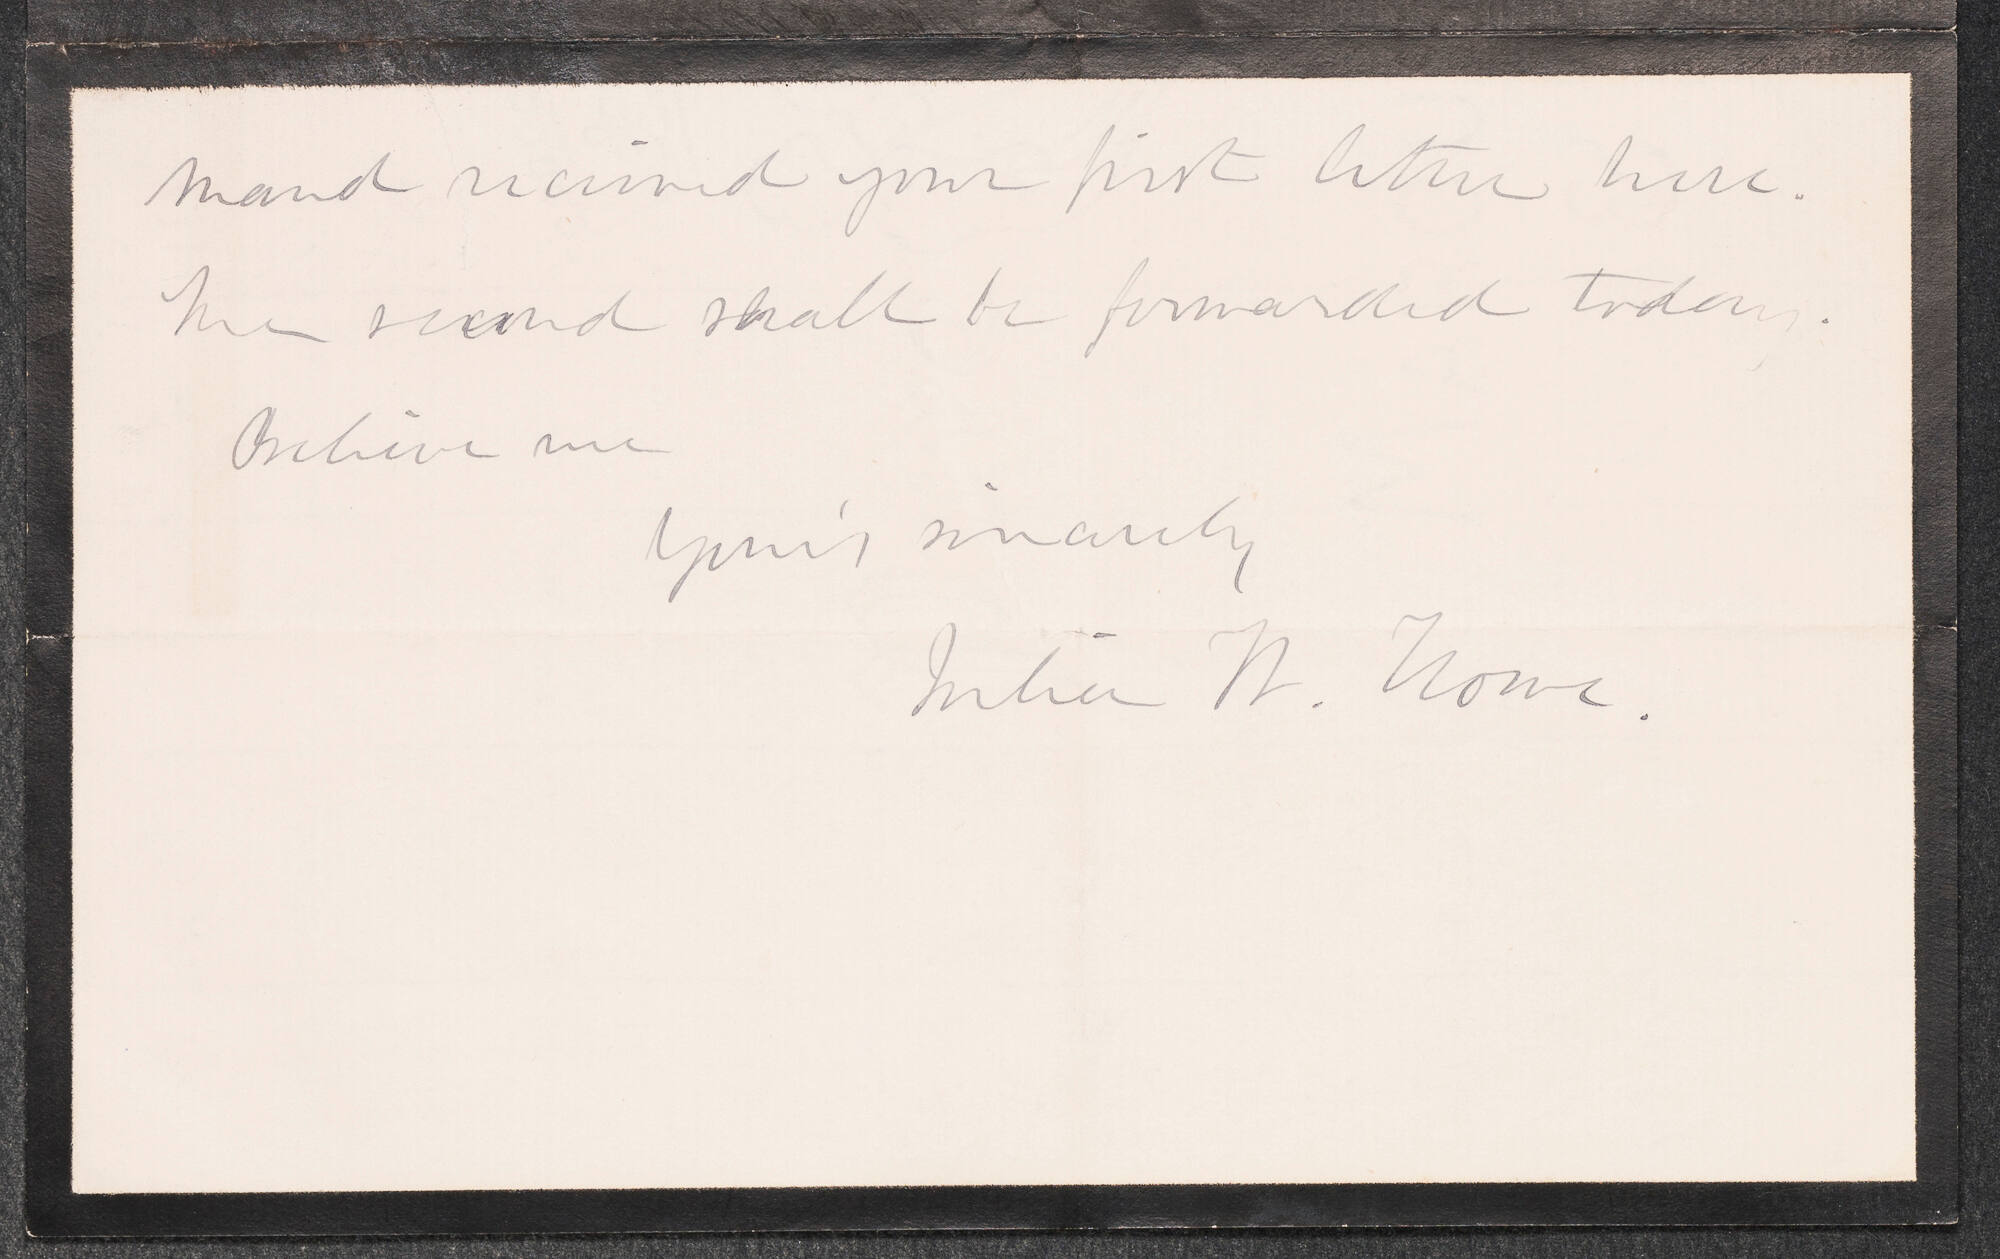 Maud received your first letter here.
The second shall be forwarded today.
Believe me
Your's sincerely
Julia W. Howe.